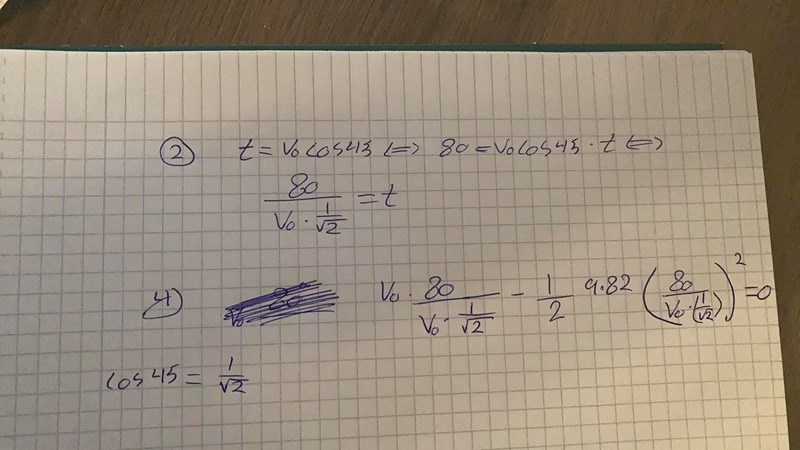 ② t = v₀cos45 ⇔ 80 = v₀cos45 · t ⇔
80 / (v₀ · 1/√2) = t
4) v₀ · 80 / (v₀ · 1/√2) − 1/2 9.82 (80 / (v₀ · (1/√2)))² = 0
cos 45 = 1/√2